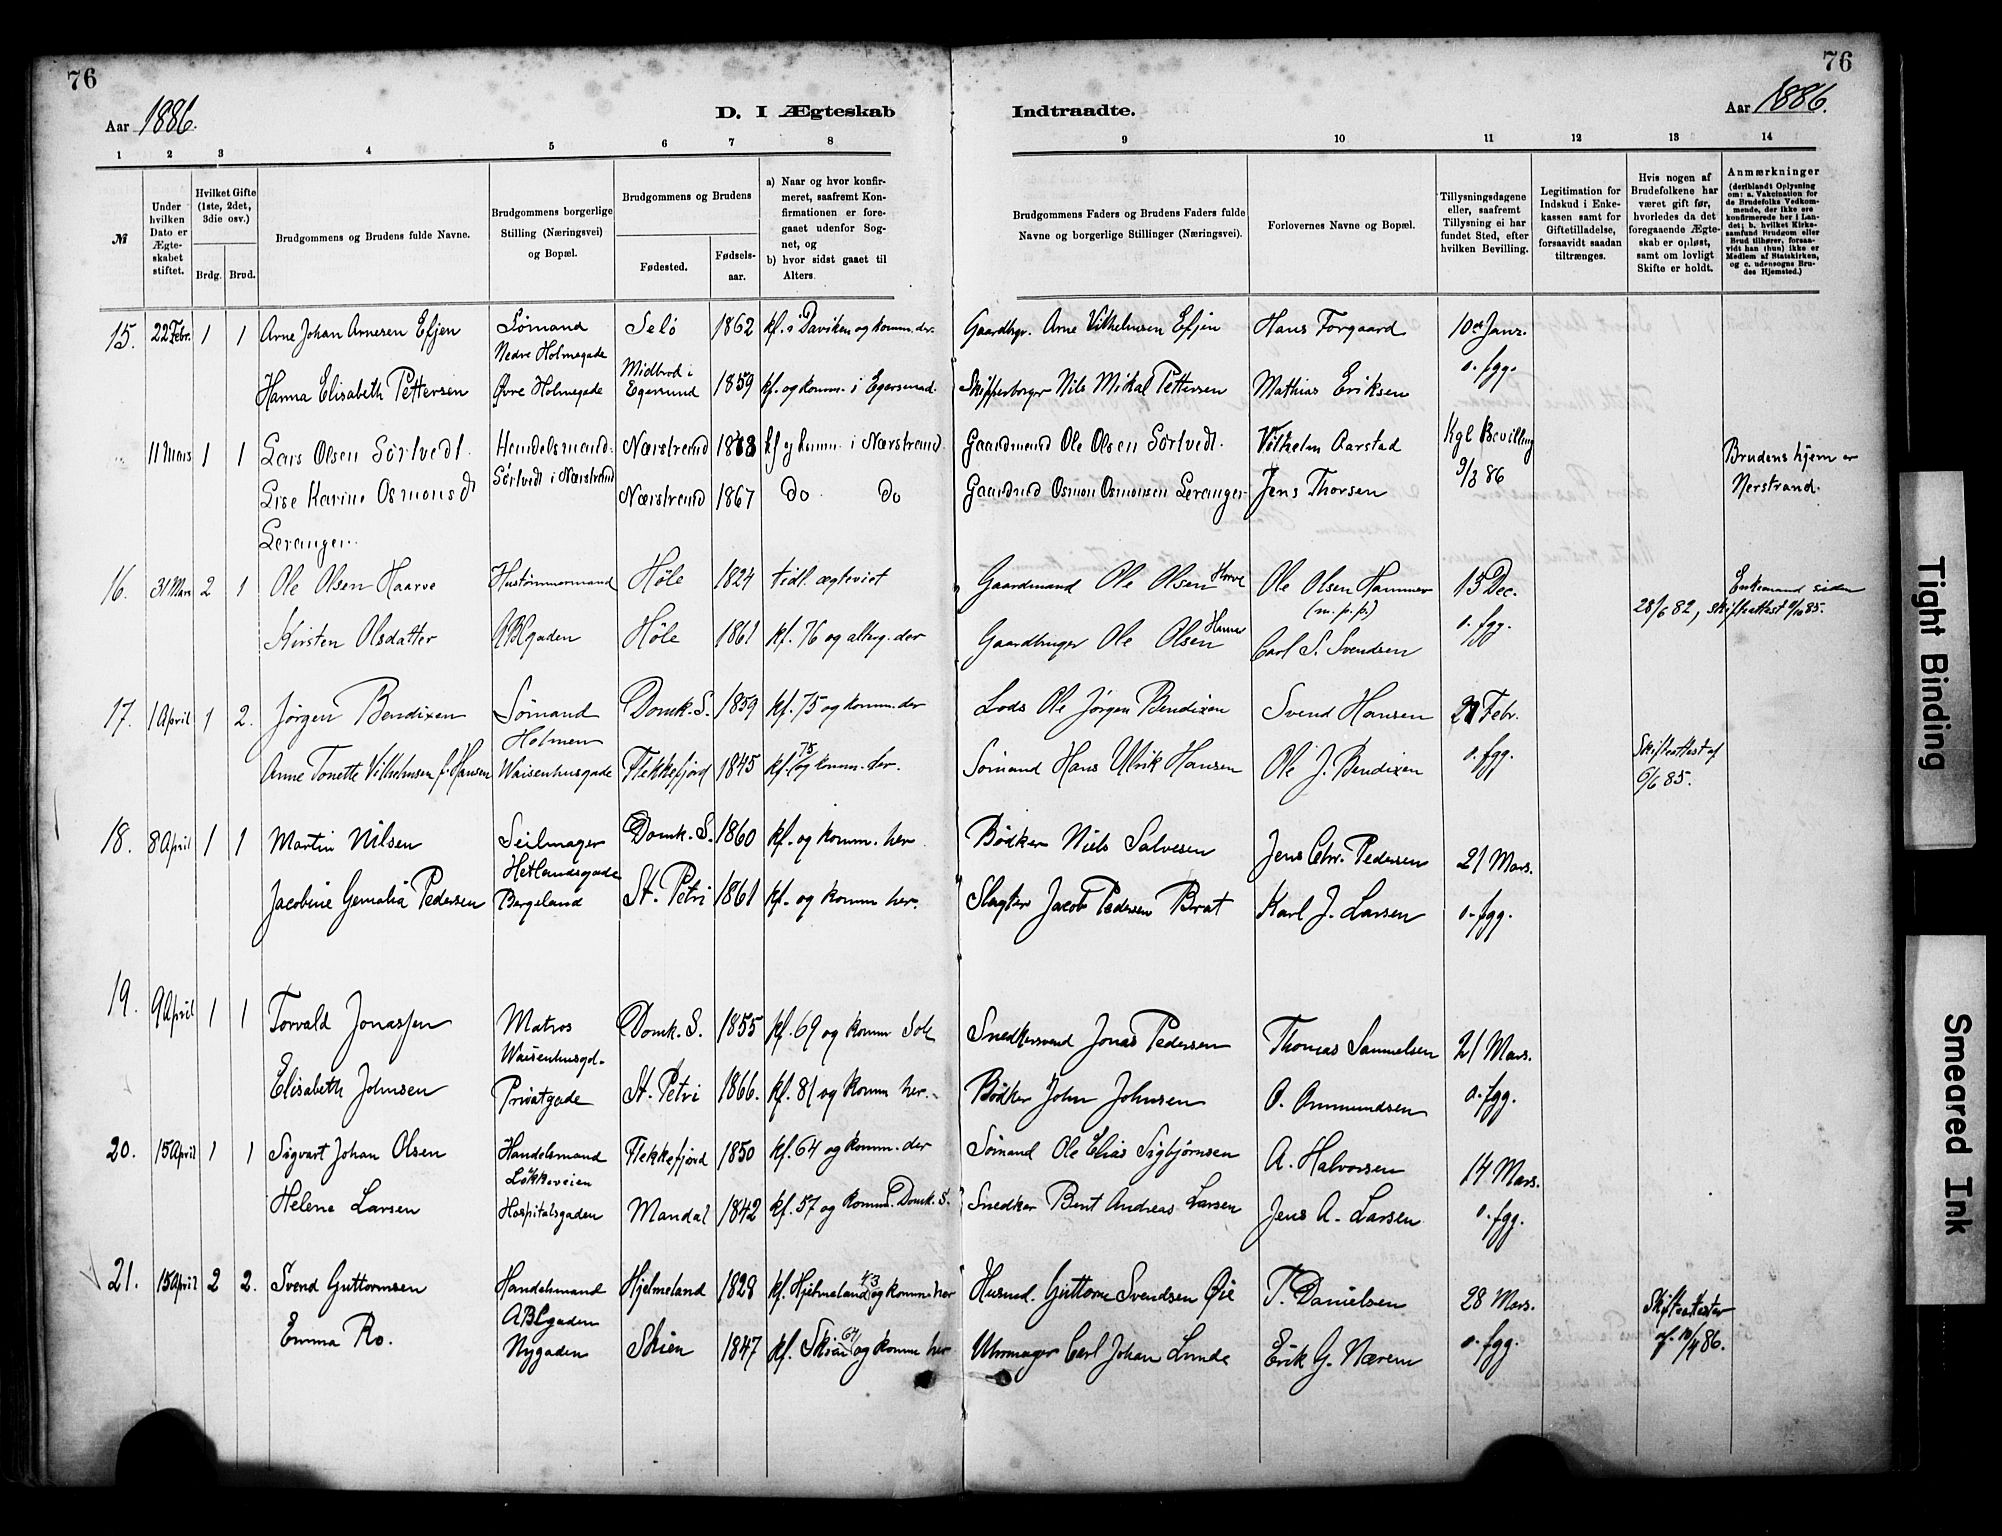 76
76
Aar 1886.
D. I Ægteskab Indtraadte.
Aar 1886.
1 2 3 4 5 6 7 8 9 10 11 12 13 14
№
Under hvilken Dato er Ægteskabet stiftet.
Hvilket Gifte (1ste, 2det, 3die osv.)
Brdg. Brud.
Brudgommens og Brudens fulde Navne.
Brudgommens borgerlige Stilling (Næringsvei) og Bopæl.
Brudgommens og Brudens
Fødested.
Fødselsaar.
a) Naar og hvor konfirmeret, saafremt Konfirmationen er foregaaet udenfor Sognet, og
b) hvor sidst gaaet til Alters.
Brudgommens Faders og Brudens Faders fulde Navne og borgerlige Stillinger (Næringsvei).
Forlovernes Navne og Bopæl.
Tillysningsdagene eller, saafremt Tillysning ei har fundet Sted, efter hvilken Bevilling.
Legitimation for Indskud i Enkekassen samt for Giftetilladelse, forsaavidt saadan tiltrænges.
Hvis nogen af Brudefolkene har været gift før, hvorledes da det foregaaende Ægteskab er opløst, samt om lovligt Skifte er holdt.
Anmærkninger
(deriblandt Oplysning om: a. Vakcination for de Brudefolks Vedkommende, der ikke ere konfirmerede her i Landet; b. hvilket Kirkesamfund Brudgom eller Brud tilhører, forsaavidt han (hun) ikke er Medlem af Statskirken, og c. udensogns Brudes Hjemsted.)
15. 22 Febr. 1 1 Arne Johan Arnesen Efjen Sømand Selö 1862 kf. i Daviken og komm. der. Gaardbgr. Arne Vilhelmsen Efjen Hans Forgaard 10de Janr.
Nedre Holmegade
o. fgg.
Hanna Elisabeth Pettersen Øvre Holmegade Midbrod i Egersund 1859 kf. og komm. i Egersund. Skipperborger Nils Mikal Pettersen Mathias Eriksen
11 Mars 1 1 Lars Olsen Sörtvedt. Handelsmand. Nærstrand 1863 kf og komm. i Nærstrand. Gaardmand Ole Olsen Sörtvedt. Vilhelm Aarstad Kgl Bevilling Brudens hjem er
Sörtvedt i Nærstrand
Lise Karine Osmonsdt Nærstrand 1867 Do Do Gaardmd Osmon Osmonsen Leranger Jens Thorsen 9/3 86 Nerstrand.
Leranger.
16. 31 Mars 2 1 Ole Olsen Haarve Hustömmermand Høle 1824 tidl. ægteviet Gaardmand Ole Olsen Ole Olsen Hammer 13 Dec. Enkemand siden
(m. p. p.) 28/6 82, skifteattest 9/10 85.
Kirsten Olsdatter ABCgaden Høle 1861 kf. 76 og alterg. der Gaardbruger Ole Olsen Hammer Carl S. Svendsen o. fgg.
17. 1 April 1 2. Jørgen Bendixen Sømand Domk. S. 1859 kf. 75 og komm. der Lods Ole Jørgen Bendixen Svend Hansen 21 Febr.
Holmen
Anne Tonette Vilhelmsen f. Hansen Waisenhusgade Flekkefjord 1845 kf. og komm. der. Sømand Hans Ulrik Hansen Ole J. Bendixen o. fgg. Skifteattest af
6/6 85.
18. 8 April 1 1 Martin Nilsen Seilmager Domk. S. 1860 kf. og komm. her Bødker Niels Salvesen Jens Chr. Pedersen 21 Mars.
Hetlandsgade
Jacobine Gemalia Pedersen Bergeland St. Petri 1861 kf. og komm her. Slagter Jacob Pedersen Brat Karl J. Larsen o. fgg.
19. 9 April 1 1 Torvald Jonassen Matros Domk. S. 1855 kf. 69 og komm Snedkersvend Jonas Pedersen Thomas Samuelsen 21 Mars.
Waisenhusgd.
Elisabeth Johnsen Privatgade St. Petri 1866. kf. 81 og komm her. Bødker John Johnsen O. Ommundsen o. fgg.
20. 15 April 1 1 Sigvart Johan Olsen Handelsmand Flekkefjord 1850 kf. 64 og komm. der Sømand Ole Elias Sigbjørnsen A. Halvorsen 14 Mars.
Løkkeveien
Helene Larsen Hospitalsgaden Mandal 1842 kf. 57 og komm. Domk. S. Snedker Bent Andreas Larsen Jens A. Larsen o. fgg.
21. 15 April 2 2. Svend Guttormsen Handelsmand Hjelmeland 1828 kf. Hjelmeland 43 og komm her Husmd. Guttorm Svendsen Øie T. Danielsen 28 Mars. Skifteattester
ABCgaden
Emma Ro. Nygaden Skien 1847 kf. Skien og komm her Uhrmager Carl Johan Lunde Erik G. Nærem o. fgg. af 10/4 86.
Tight Binding
Smeared Ink